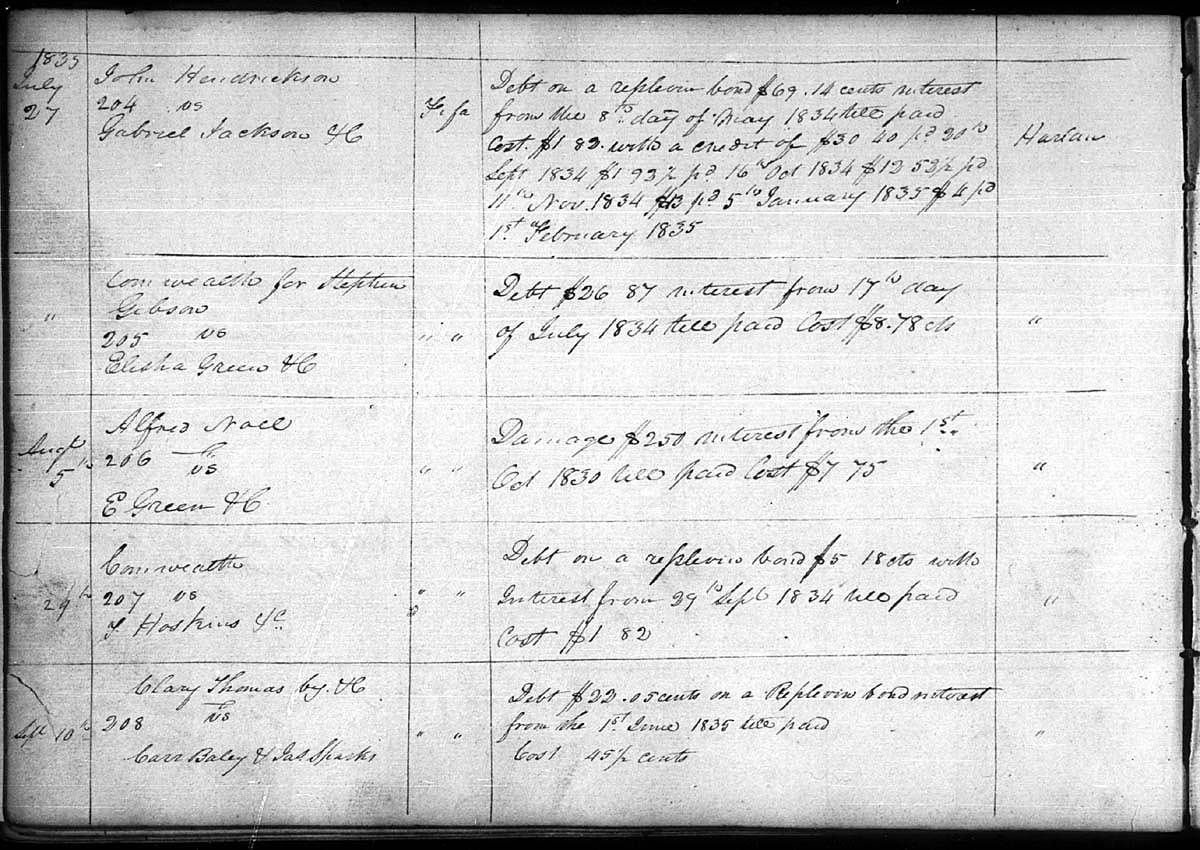 1835
July
27
John Hendrickson
204 vs
Gabriel Jackson &C
Fi fa
Debt on a replevin bond $69.14 cents interest
from the 8th day of May 1834 till paid
Cost. $1 82. with a credit of $30 40 pd 20th
Sept 1834 $1 93½ pd 16th Oct 1834 $12 53½ pd
11th Nov. 1834 $13 pd 5th January 1835 $4 pd
1st February 1835
Harlan
"
Comwealth for Stephen
Gibson
205 vs
Elisha Green &C
" "
Debt $26 87 interest from 17th day
of July 1834 till paid Cost $8.78 cts
"
Augt
5th
Alfred Noel
206 vs
E Green &C
" "
Damage $250 interest from the 1st
Oct 1830 till paid Cost $7 75
"
29th
Comwealth
207 vs
J Hoskins &C
" "
Debt on a replevin bond $5 18 cts with
Interest from 29th Sept 1834 till paid
Cost $1 82
"
Sept 10th
Clary Thomas by. &C
208 vs
Carr Baley & Jas Sparks
" "
Debt $22.05 cents on a Replevin bond interest
from the 1st June 1835 till paid
Cost 45½ cents
"